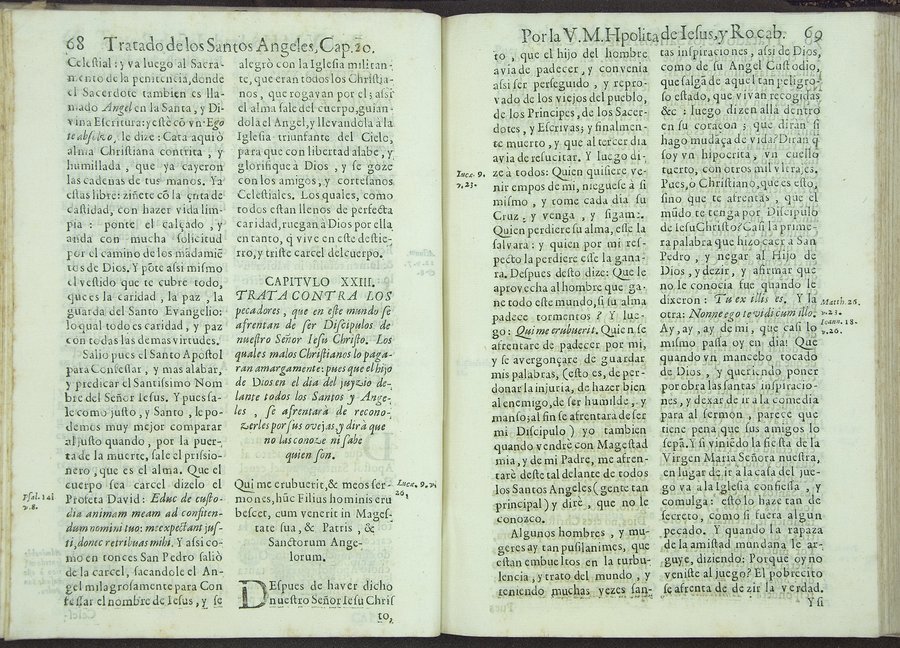 68 Tratado de los Santos Angeles, Cap. 20.
Celestial: y va luego al Sacra-
mento de la penitencia, donde
el Sacerdote tambien es lla-
mado Angel en la Santa, y Di-
vina Escritura: y este cõ vn Ego
te absolvo, le dize: Cata aqui ò
alma Christiana contrita, y
humillada, que ya cayeron
las cadenas de tus manos. Ya
estas libre: ziñete cõ la çinta de
castidad, con hazer vida lim-
pia: ponte el calçado, y
anda con mucha solicitud
por el camino de los mãdamiẽ
tos de Dios. Y põte assi mismo
el vestido que te cubre todo,
que es la caridad, la paz, la
guarda del Santo Evangelio:
lo qual todo es caridad, y paz
con todas las demas virtudes.
Salio pues el Santo Apostol
para Confessar, y mas alabar,
y predicar el Santissimo Nom
bre del Señor Iesus. Y pues sa-
le como justo, y Santo, le po-
demos muy mejor comparar
al justo quando, por la puer-
ta de la muerte, sale el prissio-
nero, que es el alma. Que el
cuerpo sea carcel dizelo el
Psal. 141
v. 8.
Profeta David: Educ de custo-
dia animam meam ad confiten-
dum nomini tuo: me expectant jus-
ti, donec retribuas mihi. Y assi co-
mo entonces San Pedro saliò
de la carcel, sacandole el An-
gel milagrosamente para Con
fessar el nombre de Iesus, y se
alegrò con la Iglesia militan-
te, que eran todos los Christia-
nos, que rogavan por el; assi
el alma sale del cuerpo, guian-
dola el Angel, y llevandola à la
Iglesia triunfante del Cielo,
para que con libertad alabe, y
glorifique à Dios, y se goze
con los amigos, y cortesanos
Celestiales. Los quales, como
todos estan llenos de perfecta
caridad, ruegan à Dios por ella
en tanto, q̃ vive en este destie-
rro, y triste carcel del cuerpo.
CAPITVLO XXIII.
TRATA CONTRA LOS
pecadores, que en este mundo se
afrentan de ser Discipulos de
nuestro Señor Iesu Christo. Los
quales malos Christianos lo paga-
ran amargamente: pues que el hijo
de Dios en el dia del juyzio de-
lante todos los Santos y Ange-
les, se afrentarà de recono-
zerles por sus ovejas y dirà que
no las conoze ni sabe
quien son.
Qui me erubuerit, & meos ser-
Luca. 9. v.
26.
mones, hũc Filius hominis eru
bescet, cum venerit in Mages-
tate sua, & Patris, &
Sanctorum Ange-
lorum.
Despues de haver dicho
nuestro Señor Iesu Chris
to,
Por la V. M. Hpolita de Iesus, y Rocab. 69
to, que el hijo del hombre
avia de padecer, y convenia
assi ser perseguido, y repro-
vado de los viejos del pueblo,
de los Principes, de los Sacer-
dotes, y Escrivas; y finalmen-
te muerto, y que al tercer dia
avia de resucitar. Y luego di-
Luca. 9.
v. 23.
ze à todos: Quien quisiere ve-
nir empos de mi, nieguese à si
mismo, y tome cada dia su
Cruz, y venga, y sigame.
Quien perdiere su alma, esse la
salvara: y quien por mi res-
pecto la perdiere esse la gana-
ra. Despues desto dize: Que le
aprovecha al hombre que ga-
ne todo este mundo, si su alma
padece tormentos? Y lue-
go: Qui me erubuerit. Quien se
afrentare de padecer por mi,
y se avergonçare de guardar
mis palabras, (esto es, de per-
donar la injuria, de hazer bien
al enemigo, de ser humilde, y
manso; al fin se afrentara de ser
mi Discipulo) yo tambien
quando vendrè con Magestad
mia, y de mi Padre, me afren-
tarè deste tal delante de todos
los Santos Angeles (gente tan
principal) y dirè, que no le
conozco.
Algunos hombres, y mu-
geres ay tan pusilanimes, que
estan embueltos en la turbu-
lencia, y trato del mundo, y
teniendo muchas vezes san-
tas inspiraciones, assi de Dios,
como de su Angel Custodio,
que salgã de aquel tan peligro-
so estado, que vivan recogidas
&c: luego dizen allà dentro
en su coraçon; que diràn si
hago mudãça de vida? Diràn q̃
soy vn hipocrita, vn cuello
tuerto, con otros mil vltrajes.
Pues, o Christiano, que es esto,
sino que te afrentas, que el
mũdo te tenga por Discipulo
de Iesu Christo? Casi la prime-
ra palabra que hizo caer à San
Pedro, y negar al Hijo de
Dios, y dezir, y afirmar que
no le conocia fue quando le
dixeron: Tu ex illis es. Y la
Matth. 26.
v. 23.
otra: Nonne ego te vidi cum illo.
Ioann. 18.
v. 26.
Ay, ay, ay de mi, que casi lo
mismo passa oy en dia! Que
quando vn mancebo tocado
de Dios, y queriendo poner
por obra las santas inspiracio-
nes, y dexar de ir a la comedia
para al sermon, parece que
tiene pena que sus amigos lo
sepã. Y si viniẽdo la fiesta de la
Virgen Maria Señora nuestra,
en lugar de ir a la casa del jue-
go va a la Iglesia confiessa, y
comulga: esto lo haze tan de
secreto, como si fuera algun
pecado. Y quando la rapaza
de la amistad mundana le ar-
guye, diziendo: Porque oy no
veniste al juego? El pobrecito
se afrenta de dezir la verdad.
Y si